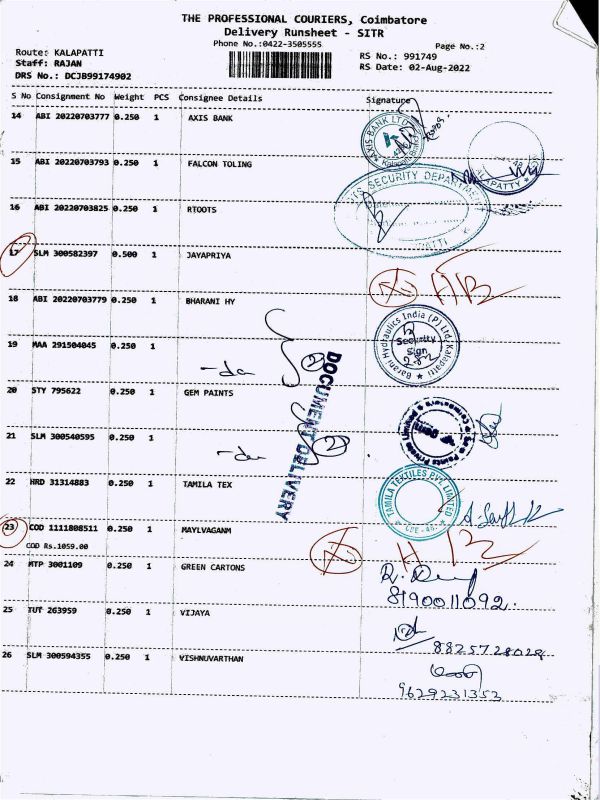 THE PROFESSIONAL COURIERS, Coimbatore
Delivery Runsheet - SITR
Phone No.:0422-3505555
Page No.:2
Route: KALAPATTI
RS No.: 991749
Staff: RAJAN
RS Date: 02-Aug-2022
DRS No.: DCJB99174902
S No Consignment No Weight PCS Consignee Details Signature
14 ABI 20220703777 0.250 1 AXIS BANK
AXIS BANK LTD
15 ABI 20220703793 0.250 1 FALCON TOLING
SECURITY DEPARTMENT
16 ABI 20220703825 0.250 1 RTOOTS
17 SLM 300582397 0.500 1 JAYAPRIYA
18 ABI 20220703779 0.250 1 BHARANI HY
Barani Hydraulics India (P) Ltd, Kalapatti
Security
Sign
19 MAA 291504045 0.250 1
DOCUMENT DELIVERY
20 STY 795622 0.250 1 GEM PAINTS
21 SLM 300540595 0.250 1
22 HRD 31314883 0.250 1 TAMILA TEX
TAMILA TEXTILES PVT. LIMITED
23 COD 1111808511 0.250 1 MAYLVAGANM
COD Rs.1059.00
24 MTP 3001109 0.250 1 GREEN CARTONS
8190011092.
25 TUT 263959 0.250 1 VIJAYA
8825728028
26 SLM 300594355 0.250 1 VISHNUVARTHAN
9629231353